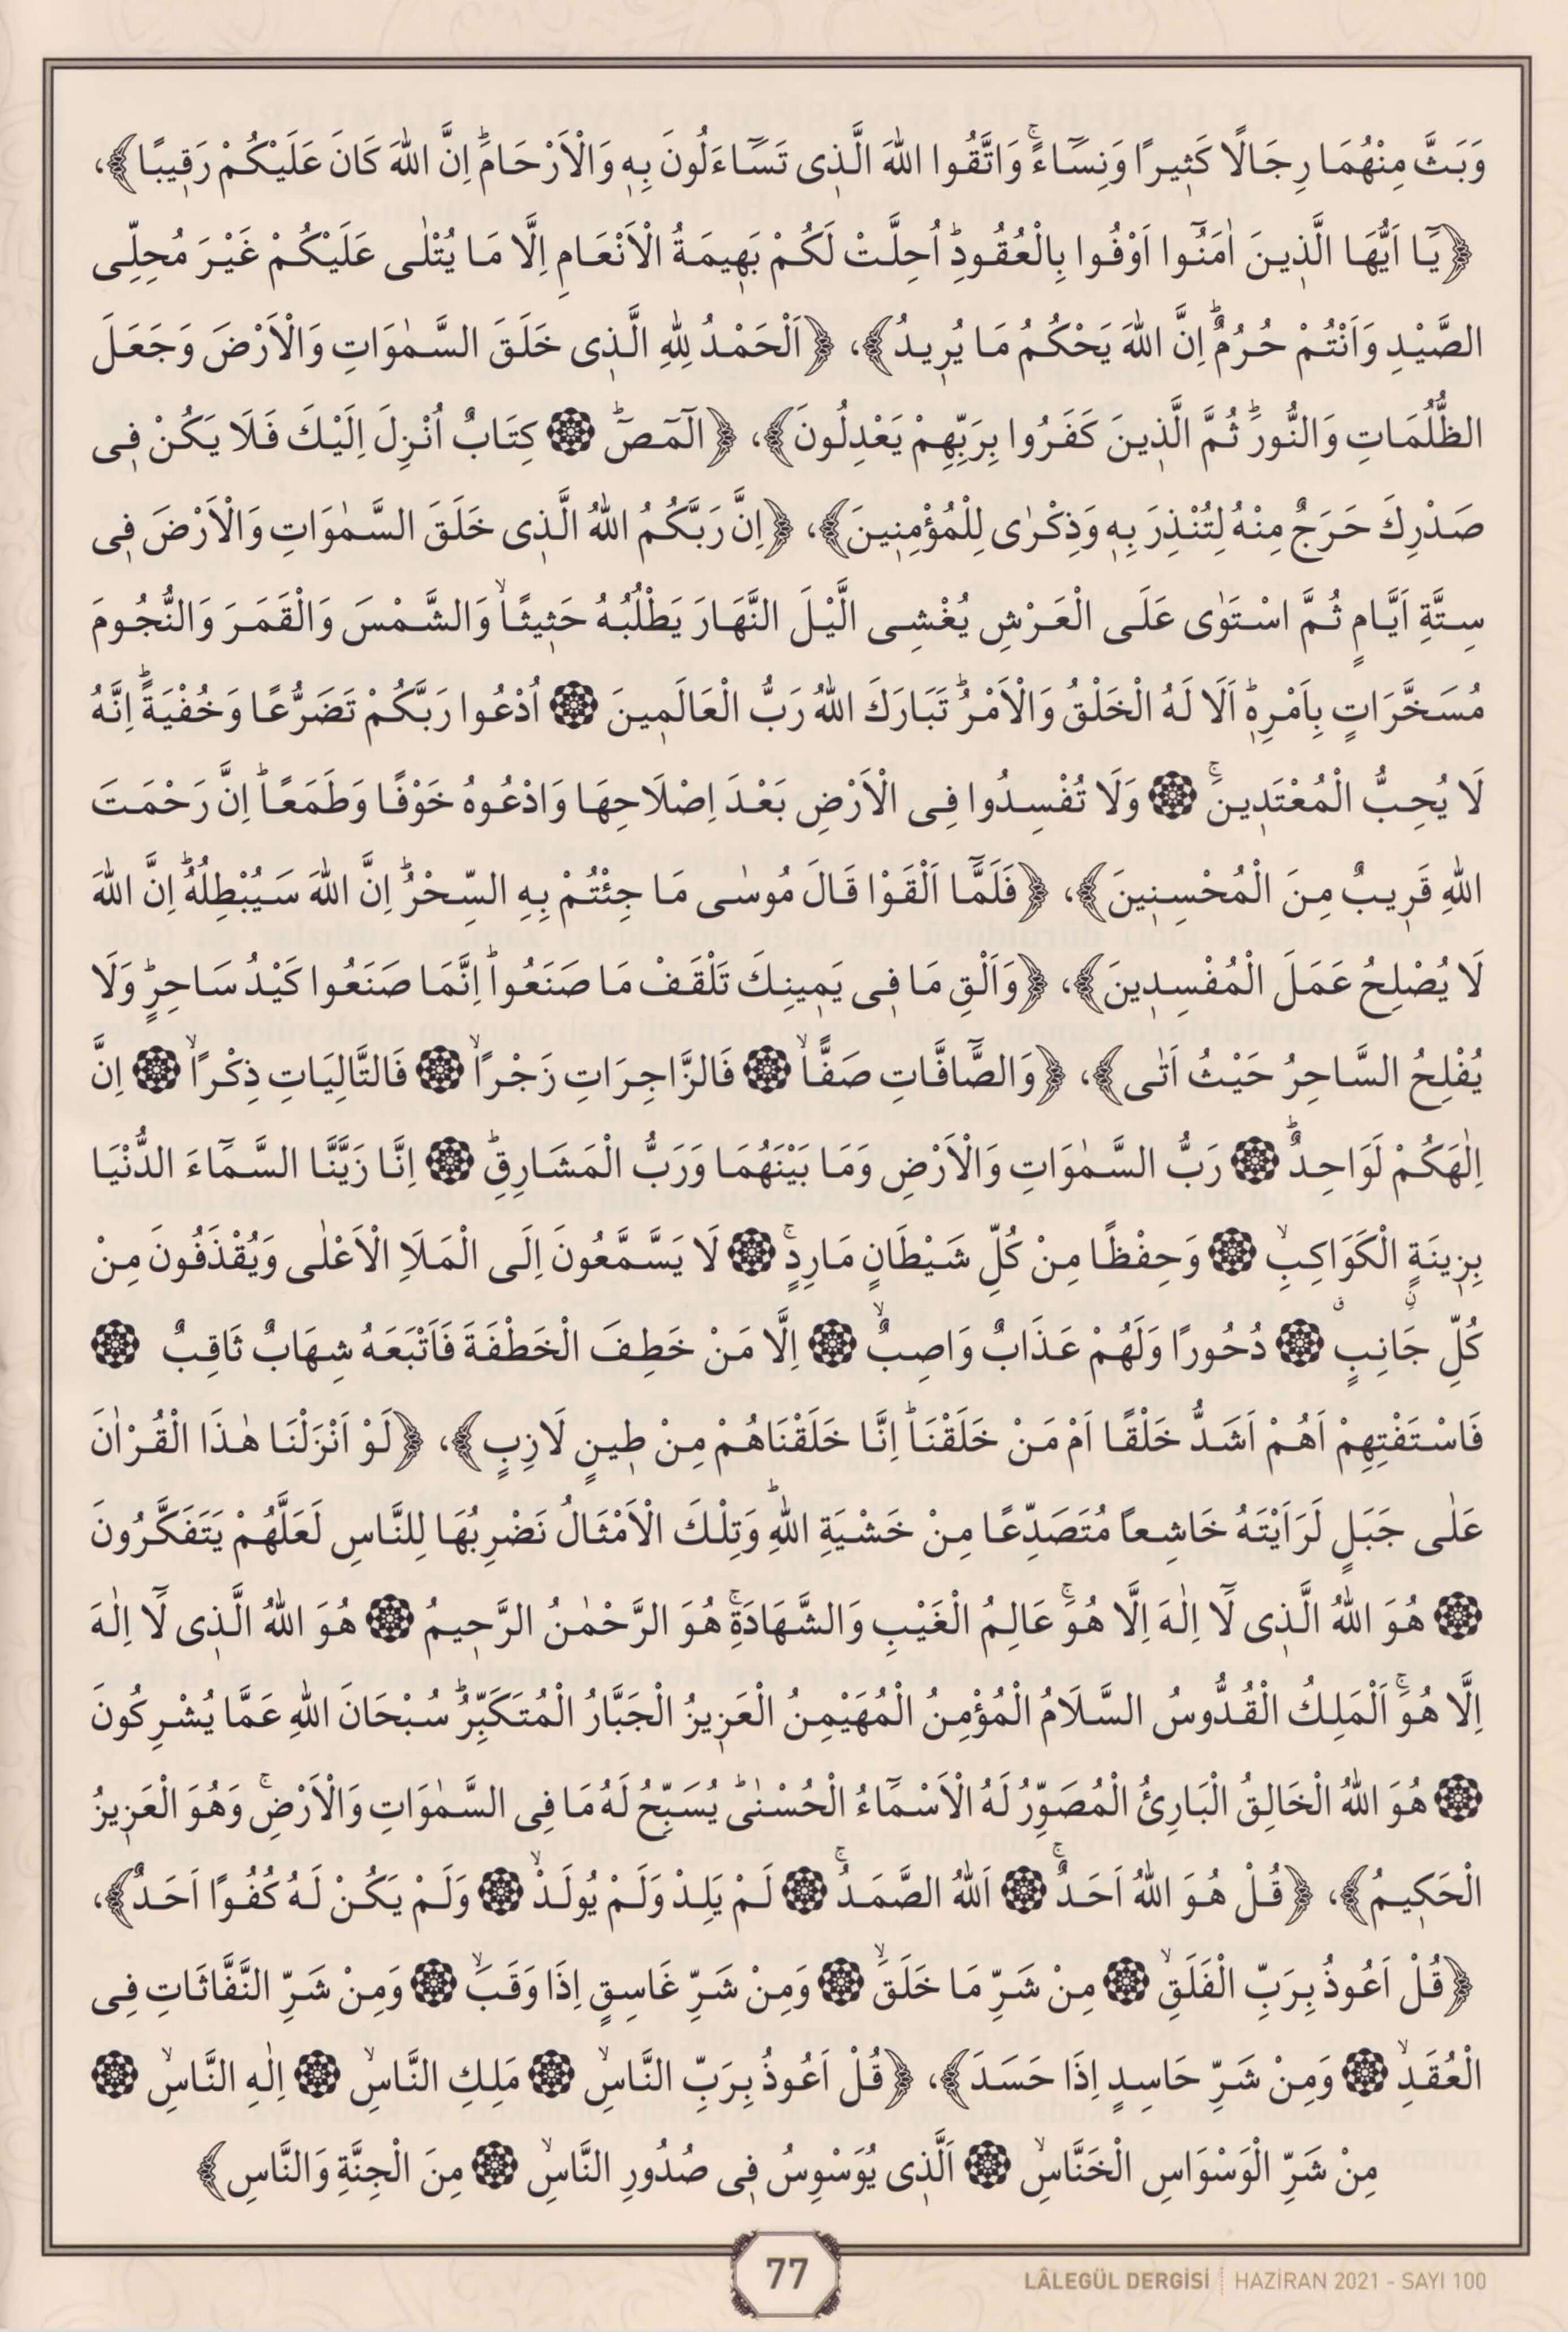 وَبَثَّ مِنْهُمَا رِجَالًا كَثِيرًا وَنِسَٓاءًۚ وَاتَّقُوا اللّٰهَ الَّذِى تَسَٓاءَلُونَ بِهِ وَالْاَرْحَامَۜ اِنَّ اللّٰهَ كَانَ عَلَيْكُمْ رَقِيبًا﴾،
﴿يَٓا اَيُّهَا الَّذِينَ اٰمَنُٓوا اَوْفُوا بِالْعُقُودِۜ اُحِلَّتْ لَكُمْ بَهِيمَةُ الْاَنْعَامِ اِلَّا مَا يُتْلٰى عَلَيْكُمْ غَيْرَ مُحِلِّى
الصَّيْدِ وَاَنْتُمْ حُرُمٌۜ اِنَّ اللّٰهَ يَحْكُمُ مَا يُرِيدُ﴾، ﴿اَلْحَمْدُ لِلّٰهِ الَّذِى خَلَقَ السَّمٰوَاتِ وَالْاَرْضَ وَجَعَلَ
الظُّلُمَاتِ وَالنُّورَۜ ثُمَّ الَّذِينَ كَفَرُوا بِرَبِّهِمْ يَعْدِلُونَ﴾، ﴿الٓمٓصٓۜ ۝ كِتَابٌ اُنْزِلَ اِلَيْكَ فَلَا يَكُنْ فِى
صَدْرِكَ حَرَجٌ مِنْهُ لِتُنْذِرَ بِهِ وَذِكْرٰى لِلْمُؤْمِنِينَ﴾، ﴿اِنَّ رَبَّكُمُ اللّٰهُ الَّذِى خَلَقَ السَّمٰوَاتِ وَالْاَرْضَ فِى
سِتَّةِ اَيَّامٍ ثُمَّ اسْتَوٰى عَلَى الْعَرْشِ يُغْشِى الَّيْلَ النَّهَارَ يَطْلُبُهُ حَثِيثًاۙ وَالشَّمْسَ وَالْقَمَرَ وَالنُّجُومَ
مُسَخَّرَاتٍ بِاَمْرِهِۜ اَلَا لَهُ الْخَلْقُ وَالْاَمْرُۜ تَبَارَكَ اللّٰهُ رَبُّ الْعَالَمِينَ ۝ اُدْعُوا رَبَّكُمْ تَضَرُّعًا وَخُفْيَةًۜ اِنَّهُ
لَا يُحِبُّ الْمُعْتَدِينَۚ ۝ وَلَا تُفْسِدُوا فِى الْاَرْضِ بَعْدَ اِصْلَاحِهَا وَادْعُوهُ خَوْفًا وَطَمَعًاۜ اِنَّ رَحْمَتَ
اللّٰهِ قَرِيبٌ مِنَ الْمُحْسِنِينَ﴾، ﴿فَلَمَّٓا اَلْقَوْا قَالَ مُوسٰى مَا جِئْتُمْ بِهِ السِّحْرُۜ اِنَّ اللّٰهَ سَيُبْطِلُهُۜ اِنَّ اللّٰهَ
لَا يُصْلِحُ عَمَلَ الْمُفْسِدِينَ﴾، ﴿وَاَلْقِ مَا فِى يَمِينِكَ تَلْقَفْ مَا صَنَعُواۜ اِنَّمَا صَنَعُوا كَيْدُ سَاحِرٍۜ وَلَا
يُفْلِحُ السَّاحِرُ حَيْثُ اَتٰى﴾، ﴿وَالصَّٓافَّاتِ صَفًّاۙ ۝ فَالزَّاجِرَاتِ زَجْرًاۙ ۝ فَالتَّالِيَاتِ ذِكْرًاۙ ۝ اِنَّ
اِلٰهَكُمْ لَوَاحِدٌۜ ۝ رَبُّ السَّمٰوَاتِ وَالْاَرْضِ وَمَا بَيْنَهُمَا وَرَبُّ الْمَشَارِقِۜ ۝ اِنَّا زَيَّنَّا السَّمَٓاءَ الدُّنْيَا
بِزِينَةٍ الْكَوَاكِبِۙ ۝ وَحِفْظًا مِنْ كُلِّ شَيْطَانٍ مَارِدٍۚ ۝ لَا يَسَّمَّعُونَ اِلَى الْمَلَاِ الْاَعْلٰى وَيُقْذَفُونَ مِنْ
كُلِّ جَانِبٍۗ ۝ دُحُورًا وَلَهُمْ عَذَابٌ وَاصِبٌۙ ۝ اِلَّا مَنْ خَطِفَ الْخَطْفَةَ فَاَتْبَعَهُ شِهَابٌ ثَاقِبٌ ۝
فَاسْتَفْتِهِمْ اَهُمْ اَشَدُّ خَلْقًا اَمْ مَنْ خَلَقْنَاۜ اِنَّا خَلَقْنَاهُمْ مِنْ طِينٍ لَازِبٍ﴾، ﴿لَوْ اَنْزَلْنَا هٰذَا الْقُرْاٰنَ
عَلٰى جَبَلٍ لَرَاَيْتَهُ خَاشِعاً مُتَصَدِّعًا مِنْ خَشْيَةِ اللّٰهِۜ وَتِلْكَ الْاَمْثَالُ نَضْرِبُهَا لِلنَّاسِ لَعَلَّهُمْ يَتَفَكَّرُونَ
۝ هُوَ اللّٰهُ الَّذِى لَٓا اِلٰهَ اِلَّا هُوَۚ عَالِمُ الْغَيْبِ وَالشَّهَادَةِۚ هُوَ الرَّحْمٰنُ الرَّحِيمُ ۝ هُوَ اللّٰهُ الَّذِى لَٓا اِلٰهَ
اِلَّا هُوَۚ اَلْمَلِكُ الْقُدُّوسُ السَّلَامُ الْمُؤْمِنُ الْمُهَيْمِنُ الْعَزِيزُ الْجَبَّارُ الْمُتَكَبِّرُۜ سُبْحَانَ اللّٰهِ عَمَّا يُشْرِكُونَ
۝ هُوَ اللّٰهُ الْخَالِقُ الْبَارِئُ الْمُصَوِّرُ لَهُ الْاَسْمَٓاءُ الْحُسْنٰىۜ يُسَبِّحُ لَهُ مَا فِى السَّمٰوَاتِ وَالْاَرْضِۚ وَهُوَ الْعَزِيزُ
الْحَكِيمُ﴾، ﴿قُلْ هُوَ اللّٰهُ اَحَدٌۚ ۝ اَللّٰهُ الصَّمَدُۚ ۝ لَمْ يَلِدْ وَلَمْ يُولَدْۙ ۝ وَلَمْ يَكُنْ لَهُ كُفُوًا اَحَدٌ﴾،
﴿قُلْ اَعُوذُ بِرَبِّ الْفَلَقِۙ ۝ مِنْ شَرِّ مَا خَلَقَۙ ۝ وَمِنْ شَرِّ غَاسِقٍ اِذَا وَقَبَۙ ۝ وَمِنْ شَرِّ النَّفَّاثَاتِ فِى
الْعُقَدِۙ ۝ وَمِنْ شَرِّ حَاسِدٍ اِذَا حَسَدَ﴾، ﴿قُلْ اَعُوذُ بِرَبِّ النَّاسِۙ ۝ مَلِكِ النَّاسِۙ ۝ اِلٰهِ النَّاسِۙ ۝
مِنْ شَرِّ الْوَسْوَاسِ الْخَنَّاسِۙ ۝ اَلَّذِى يُوَسْوِسُ فِى صُدُورِ النَّاسِۙ ۝ مِنَ الْجِنَّةِ وَالنَّاسِ﴾
77
LÂLEGÜL DERGİSİ | HAZİRAN 2021 - SAYI 100